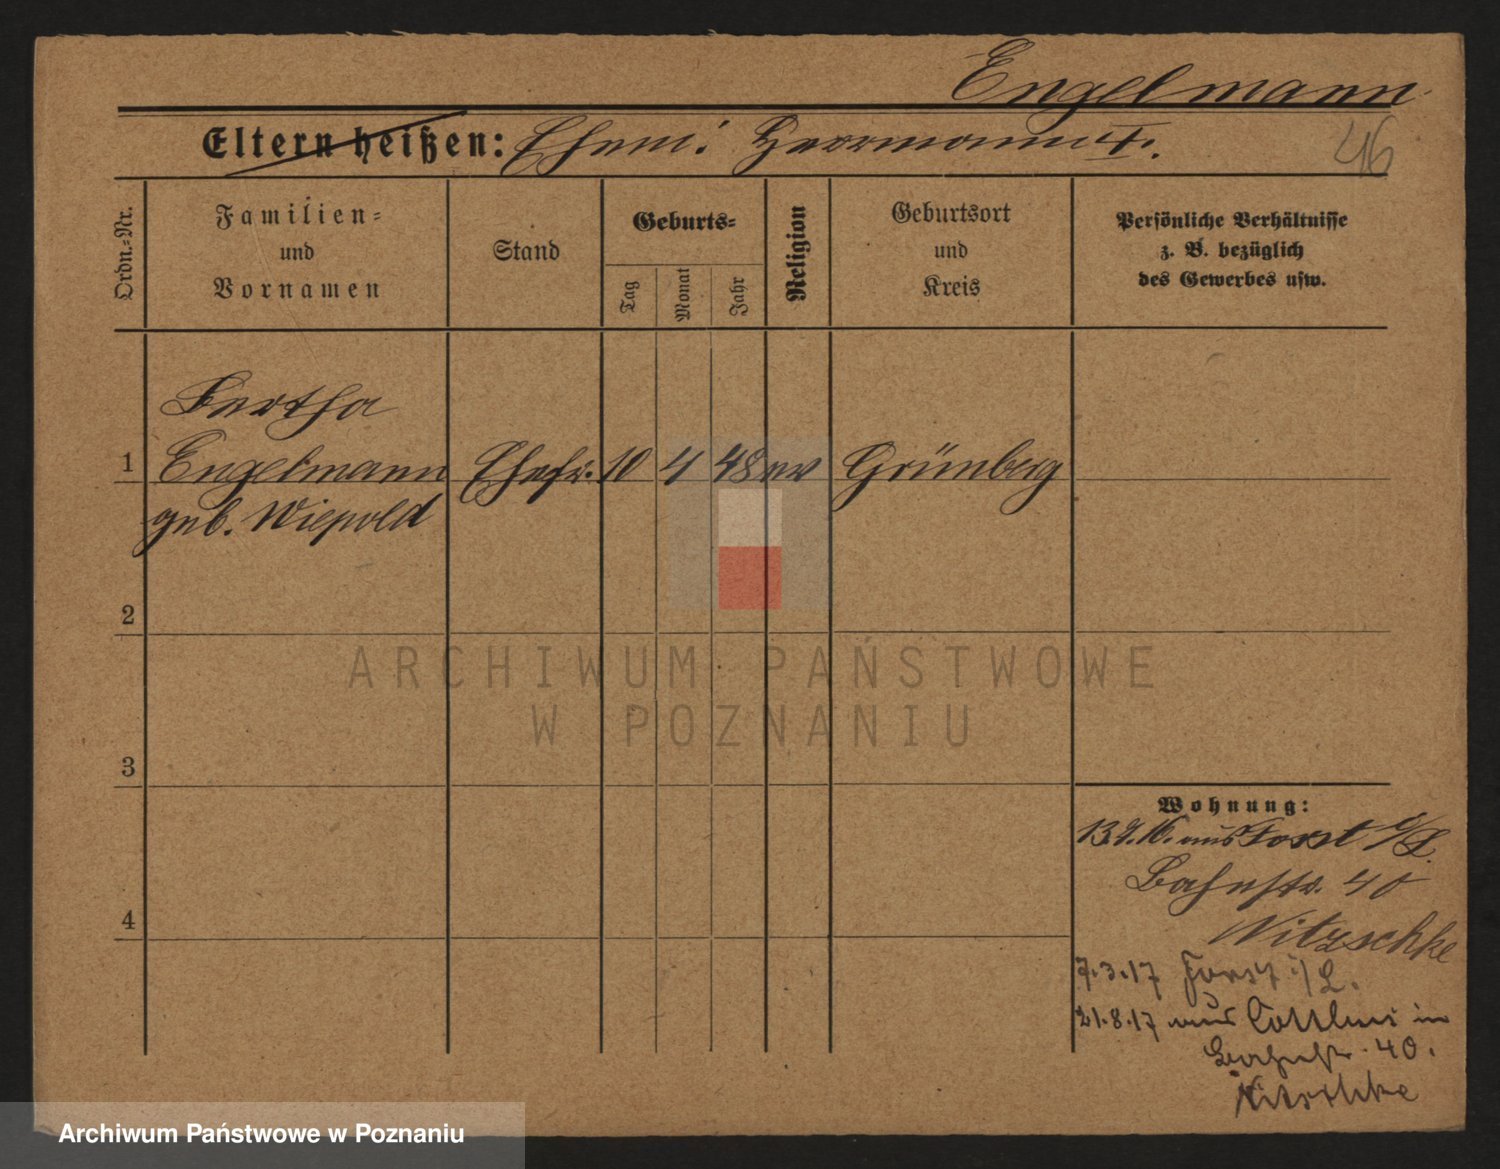 Engelmann
Eltern heißen: Ehem: Herrmann †.
46
Ordn.=Nr.
Familien=
und
Vornamen
Stand
Geburts=
Tag
Monat
Jahr
Religion
Geburtsort
und
Kreis
Persönliche Verhältnisse
z. B. bezüglich
des Gewerbes usw.
Bertha
1 Engelmann Ehefr. 10 4 48 ev Grünberg
geb. Wiepold
2
ARCHIWUM PAŃSTWOWE
W POZNANIU
3
Wohnung:
13.9.16. aus Forst i/L.
Bahnstr. 40
4
Nitzschke
7.3.17 Forst i/L.
21.8.17 aus Cottbus in
Bahnstr. 40.
Nitschke
Archiwum Państwowe w Poznaniu